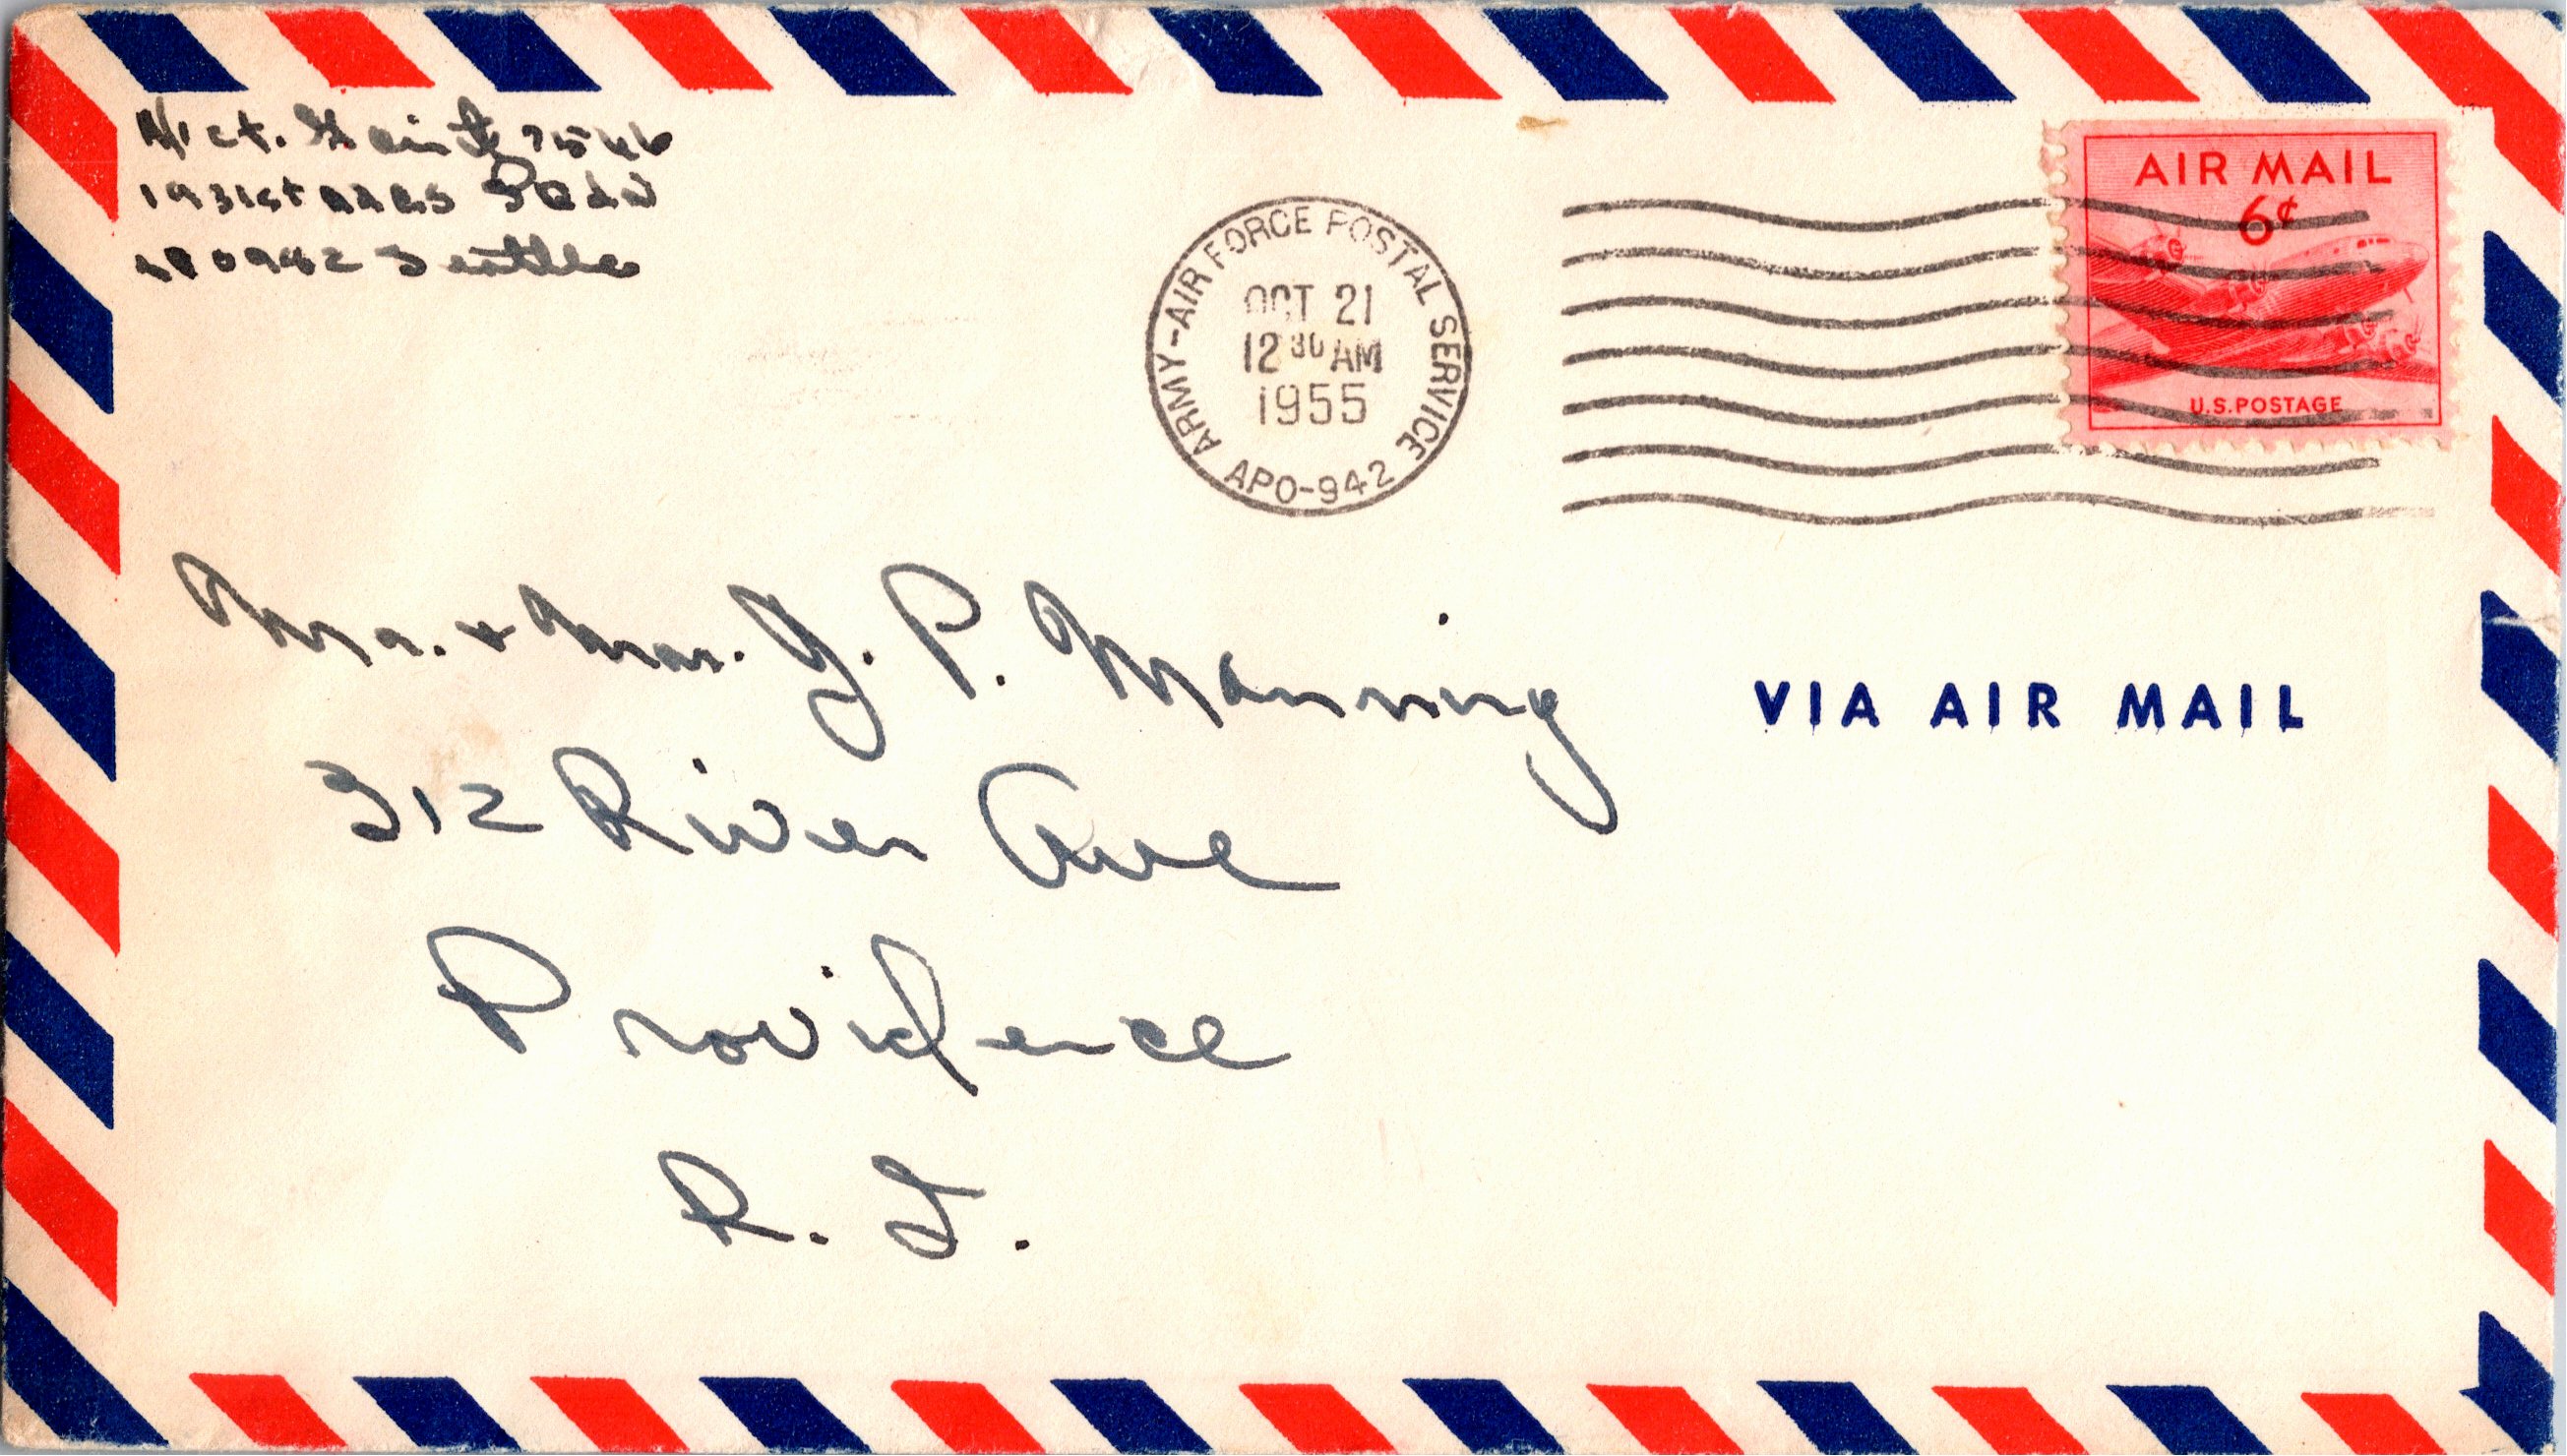 A/1ct.
APO 942 Seattle
ARMY-AIR FORCE POSTAL SERVICE
OCT 21
12 30 AM
1955
APO-942
AIR MAIL
6¢
U.S. POSTAGE
Mr. + Mrs. J. P. Manning
312 River Ave
Providence
R. I.
VIA AIR MAIL